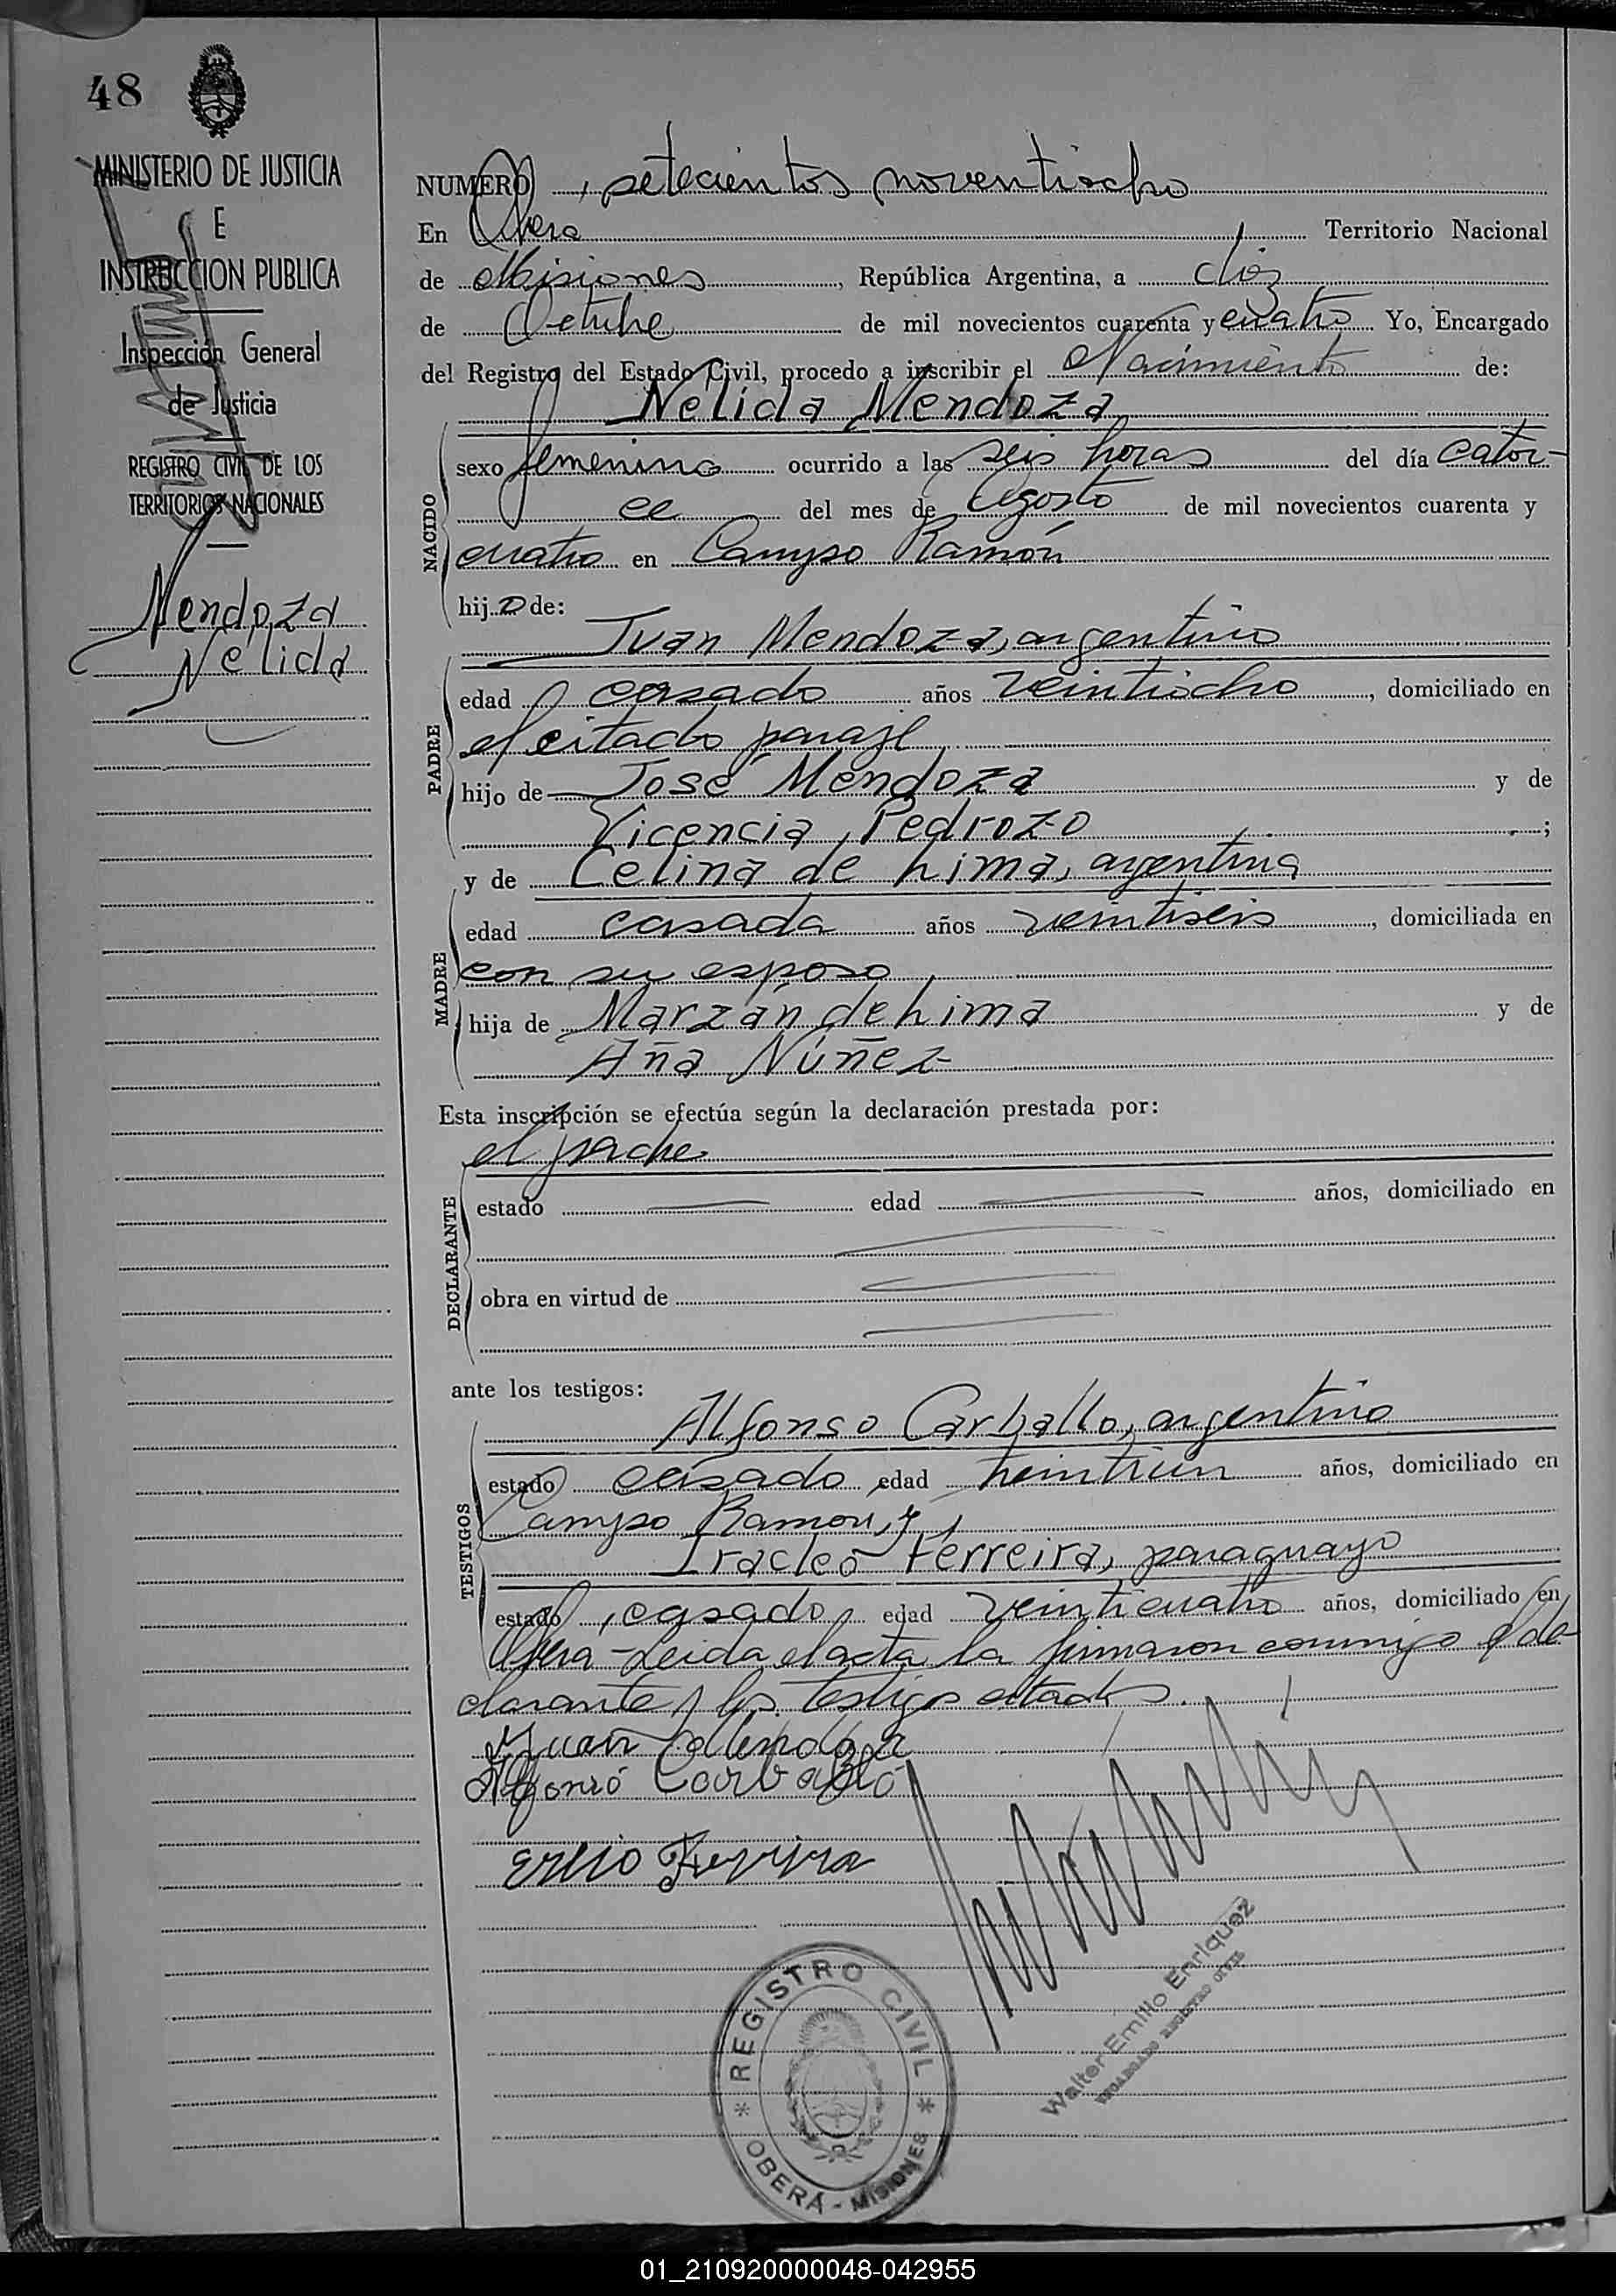 48
MINISTERIO DE JUSTICIA
E
INSTRUCCION PUBLICA
Inspección General
de Justicia
REGISTRO CIVIL DE LOS
TERRITORIOS NACIONALES
Mendoza
Nélida
NUMERO , setecientos noventiocho
En Oberá Territorio Nacional
de Misiones, República Argentina, a diez
de Octubre de mil novecientos cuarenta y cuatro Yo, Encargado
del Registro del Estado Civil, procedo a inscribir el Nacimiento de:
Nélida Mendoza
NACIDO
sexo femenino ocurrido a las seis horas del día cator-
ce del mes de Agosto de mil novecientos cuarenta y
cuatro en Campo Ramón
hija de:
Juan Mendoza, argentino
PADRE
edad casado años veintiocho, domiciliado en
el citado paraje
hijo de José Mendoza y de
Vicencia Pedrozo ;
y de Celina de Lima, argentina
MADRE
edad casada años veintiseis, domiciliada en
con su esposo
hija de Marzán de Lima y de
Aña Núñez
Esta inscripción se efectúa según la declaración prestada por:
el padre
DECLARANTE
estado edad años, domiciliado en
obra en virtud de
ante los testigos:
Alfonso Carballo, argentino
TESTIGOS
estado casado edad años, domiciliado en
Campo Ramon, y
Iracleo Ferreira, paraguayo
estado casado, edad veinticuatro años, domiciliado en
Oberá - Leida el acta la firmaron conmigo el de-
clarante y los testigos citados.
Juan Mendoza
Alfonso Carballo
Ferreira
REGISTRO CIVIL
* OBERÁ - MISIONES *
Walter Emilio Enriquez
ENCARGADO REGISTRO CIVIL
01_210920000048-042955